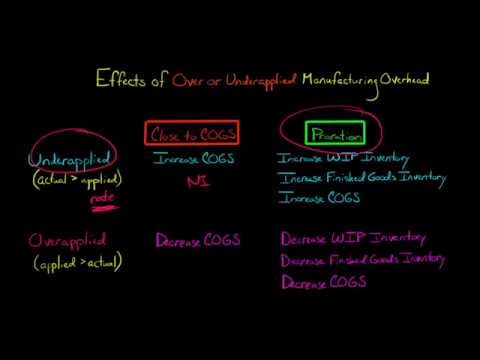 Effects of Over or Underapplied Manufacturing Overhead
Close to COGS
Proration
Underapplied
(actual > applied)
rate
Increase COGS
NI
Increase WIP Inventory
Increase Finished Goods Inventory
Increase COGS
Overapplied
(applied > actual)
Decrease COGS
Decrease WIP Inventory
Decrease Finished Goods Inventory
Decrease COGS